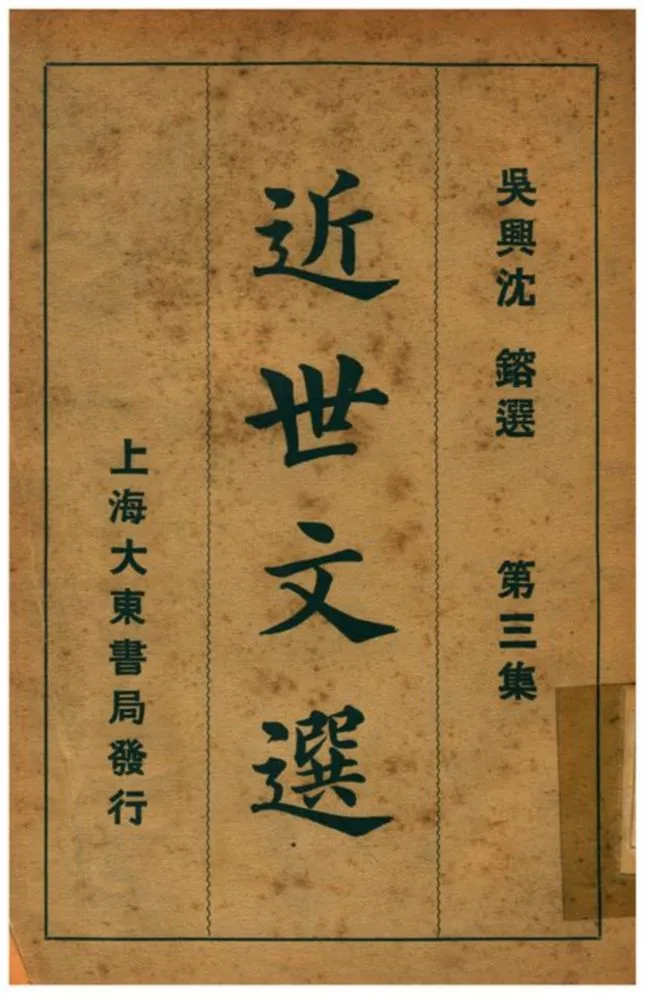 吳興沈 鎔選 第三集
近世文選
上海大東書局發行